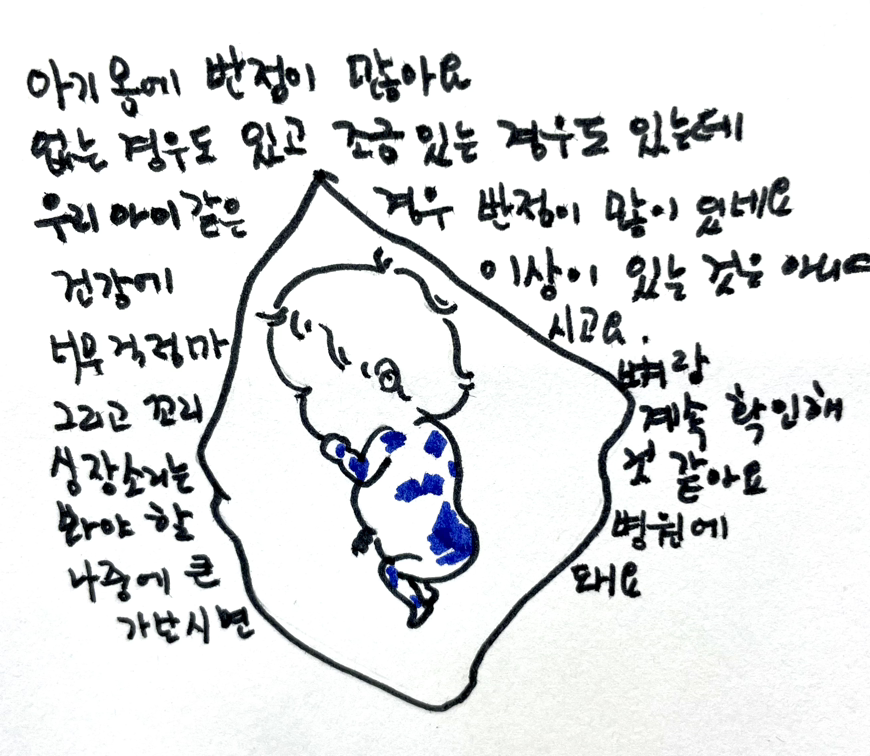 아기 몸에 반점이 많아요
없는 경우도 있고 조금 있는 경우도 있는데
우리 아이 같은 경우 반점이 많이 있네요
건강에 이상이 있는 것은 아니
너무 걱정마 시고요.
그리고 꼬리 뼈랑
심장소리는 계속 확인해
봐야 할 것 같아요
나중에 큰 병원에
가보시면 돼요